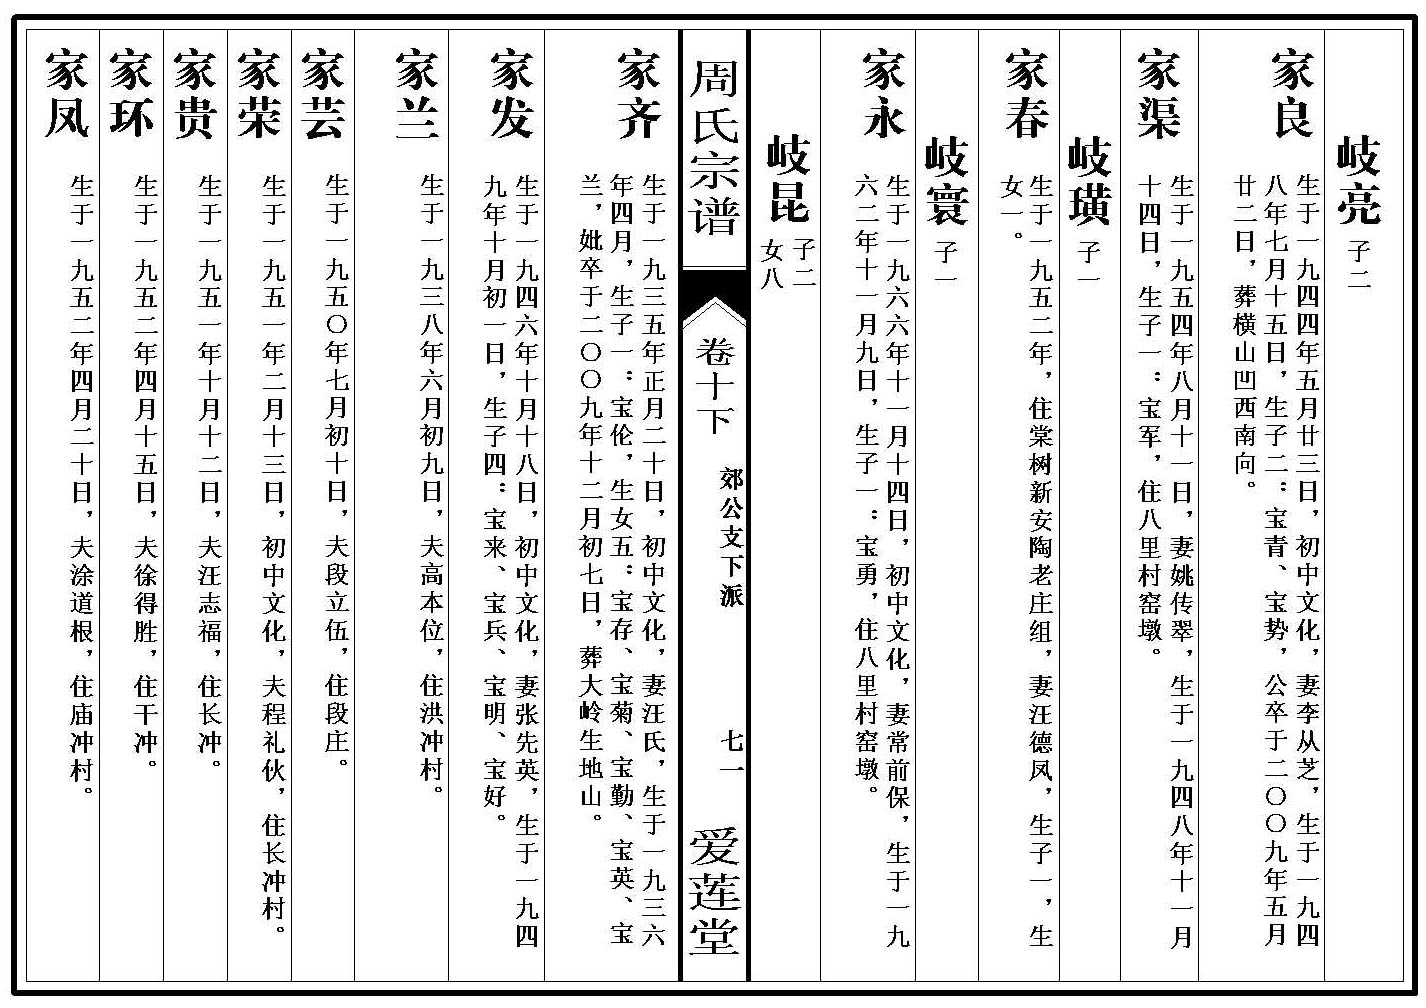 岐亮
子二
家良
生于一九四四年五月廿三日，初中文化，妻李从芝，生于一九四
八年七月十五日，生子二：宝青、宝势，公卒于二〇〇九年五月
廿二日，葬横山凹西南向。
家渠
生于一九五四年八月十一日，妻姚传翠，生于一九四八年十一月
十四日，生子一：宝军，住八里村窑墩。
岐璜
子一
家春
生于一九五二年，住棠树新安陶老庄组，妻汪德凤，生子一，生
女一。
岐寰
子一
家永
生于一九六六年十一月十四日，初中文化，妻常前保，生于一九
六二年十一月九日，生子一：宝勇，住八里村窑墩。
岐昆
子二
女八
周氏宗谱
卷十下
郊公支下派
七一
爱莲堂
家齐
生于一九三五年正月二十日，初中文化，妻汪氏，生于一九三六
年四月，生子一：宝伦，生女五：宝存、宝菊、宝勤、宝英、宝
兰，妣卒于二〇〇九年十二月初七日，葬大岭生地山。
家发
生于一九四六年十月十八日，初中文化，妻张先英，生于一九四
九年十月初一日，生子四：宝来、宝兵、宝明、宝好。
家兰
生于一九三八年六月初九日，夫高本位，住洪冲村。
家芸
生于一九五〇年七月初十日，夫段立伍，住段庄。
家荣
生于一九五一年二月十三日，初中文化，夫程礼伙，住长冲村。
家贵
生于一九五一年十月十二日，夫汪志福，住长冲。
家环
生于一九五二年四月十五日，夫徐得胜，住干冲。
家凤
生于一九五二年四月二十日，夫涂道根，住庙冲村。